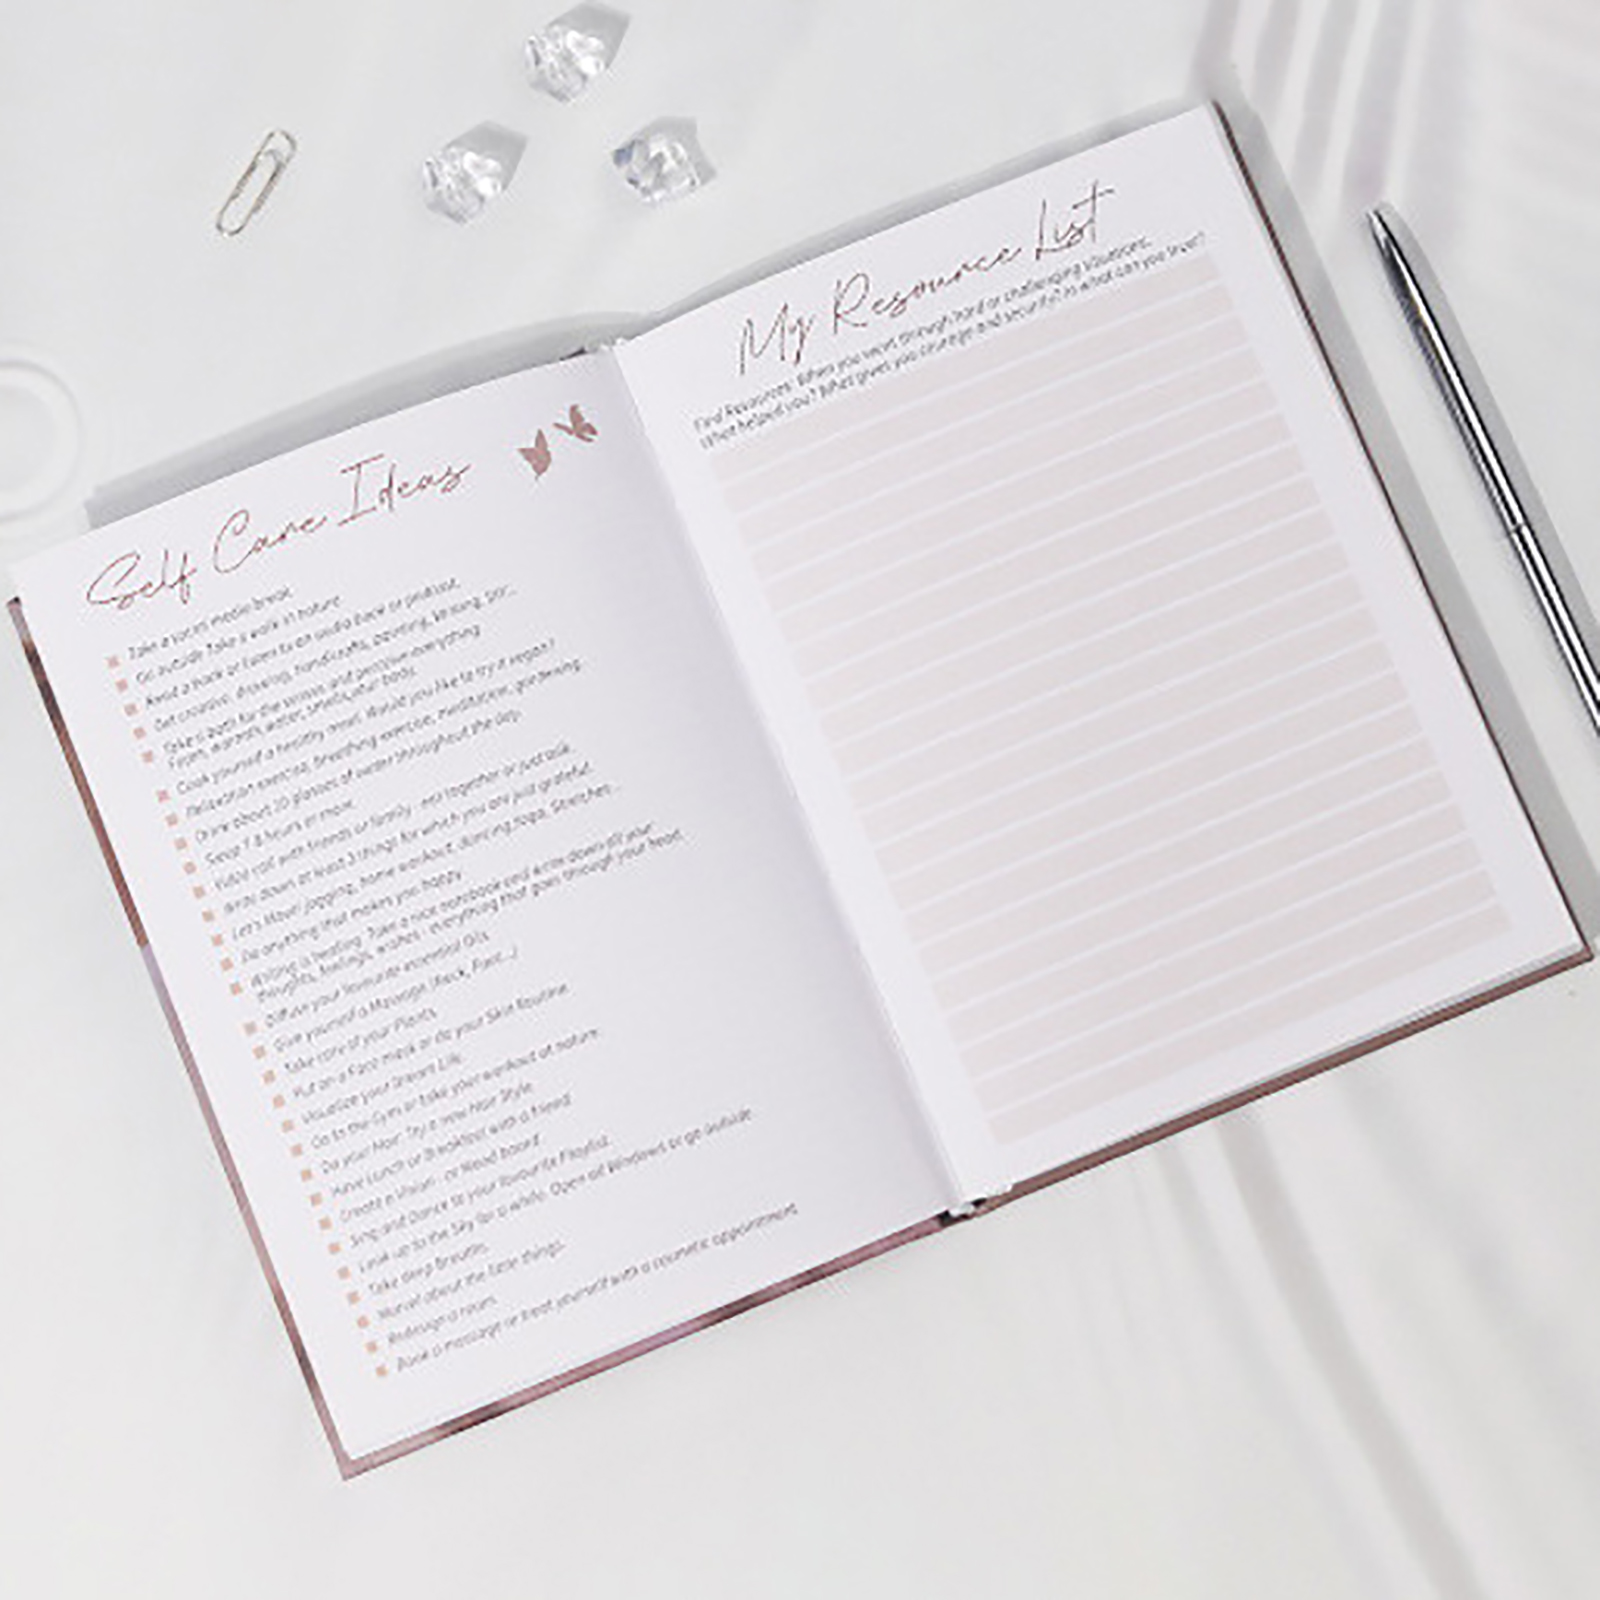 Self Care Ideas
Take a social media break.
Go outside. Take a walk in nature
Read a book or listen to an audio book or podcast.
Get creative: drawing, handicrafts, painting, knitting, DIY...
Take a bath for the senses and perceive everything
Foam, warmth, water, smells, your body.
Cook yourself a healthy meal. Would you like to try it vegan?
Relaxation exercise, breathing exercise, meditation, gardening
Drink about 10 glasses of water throughout the day.
Sleep 7-8 hours or more.
Video call with friends or family - eat together or just talk.
Write down at least 3 things for which you are just grateful.
Let's Move! Jogging, home workout, dancing, yoga, Stretches...
Do anything that makes you happy.
Writing is healing. Take a nice notebook and write down all your
thoughts, feelings, wishes - everything that goes through your head.
Diffuse your favourite essential Oils
Give yourself a Massage (Neck, Face...)
Take care of your Plants.
Put on a Face mask or do your Skin Routine
Visualize your Dream Life.
Go to the Gym or take your workout at nature.
Do your Hair. Try a new Hair Style.
Have Lunch or Breakfast with a friend
Create a Vision- or Mood board.
Sing and Dance to your favourite Playlist.
Look up to the Sky for a while. Open all Windows or go outside
Take deep Breaths.
Marvel about the little things.
Redesign a room.
Book a massage or treat yourself with a cosmetic appointment
My Resource List
Find Resources: When you went through hard or challenging situations,
what helped you? What gives you courage and security? In what can you trust?